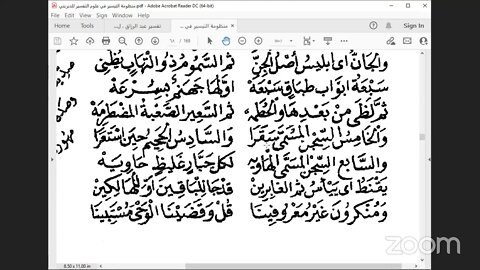 منظومة التيسير في علوم التفسير للديريني.pdf - Adobe Acrobat Reader DC (64-bit)
منظومة التيسير في ...
تفسير عبد الرزاق ...
Sign In
/ 168
والجان اى ابليس اصل الجن
ثم السموم ذو التهاب
سبعة ابواب طباق سبعة
اولها جهنم بسرعة
ثم لظى من بعدها والحطمه
ثم السعير الصعبة المضطرمه
والخامس السجن المسمى سقرا
والسادس الجحيم حين استعرا
والسابع السجن المسمى الهاويه
لكل جبار غليظ حاويه
يقنط اى ييأس ثم الغابرين
قد جا للباقين او للهالكين
ومنكرون غير معروفينا
قل وقضينا الوحى مستبينا
8.50 x 11.00 in
zoom